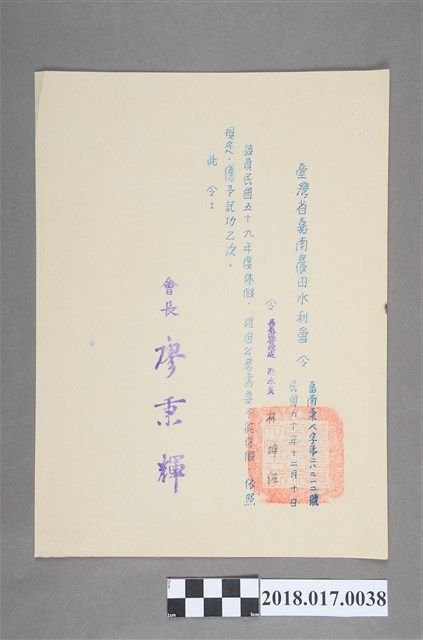 臺灣省嘉南農田水利會 令
嘉南京人字第二八二一二號
民國六十年十二月十日
令
林 坤
該員民國五十九年度休假,確因公務需要不能休假 依照
規定,應予記功乙次。
此 令:
會長 廖秉輝
2018.017.0038